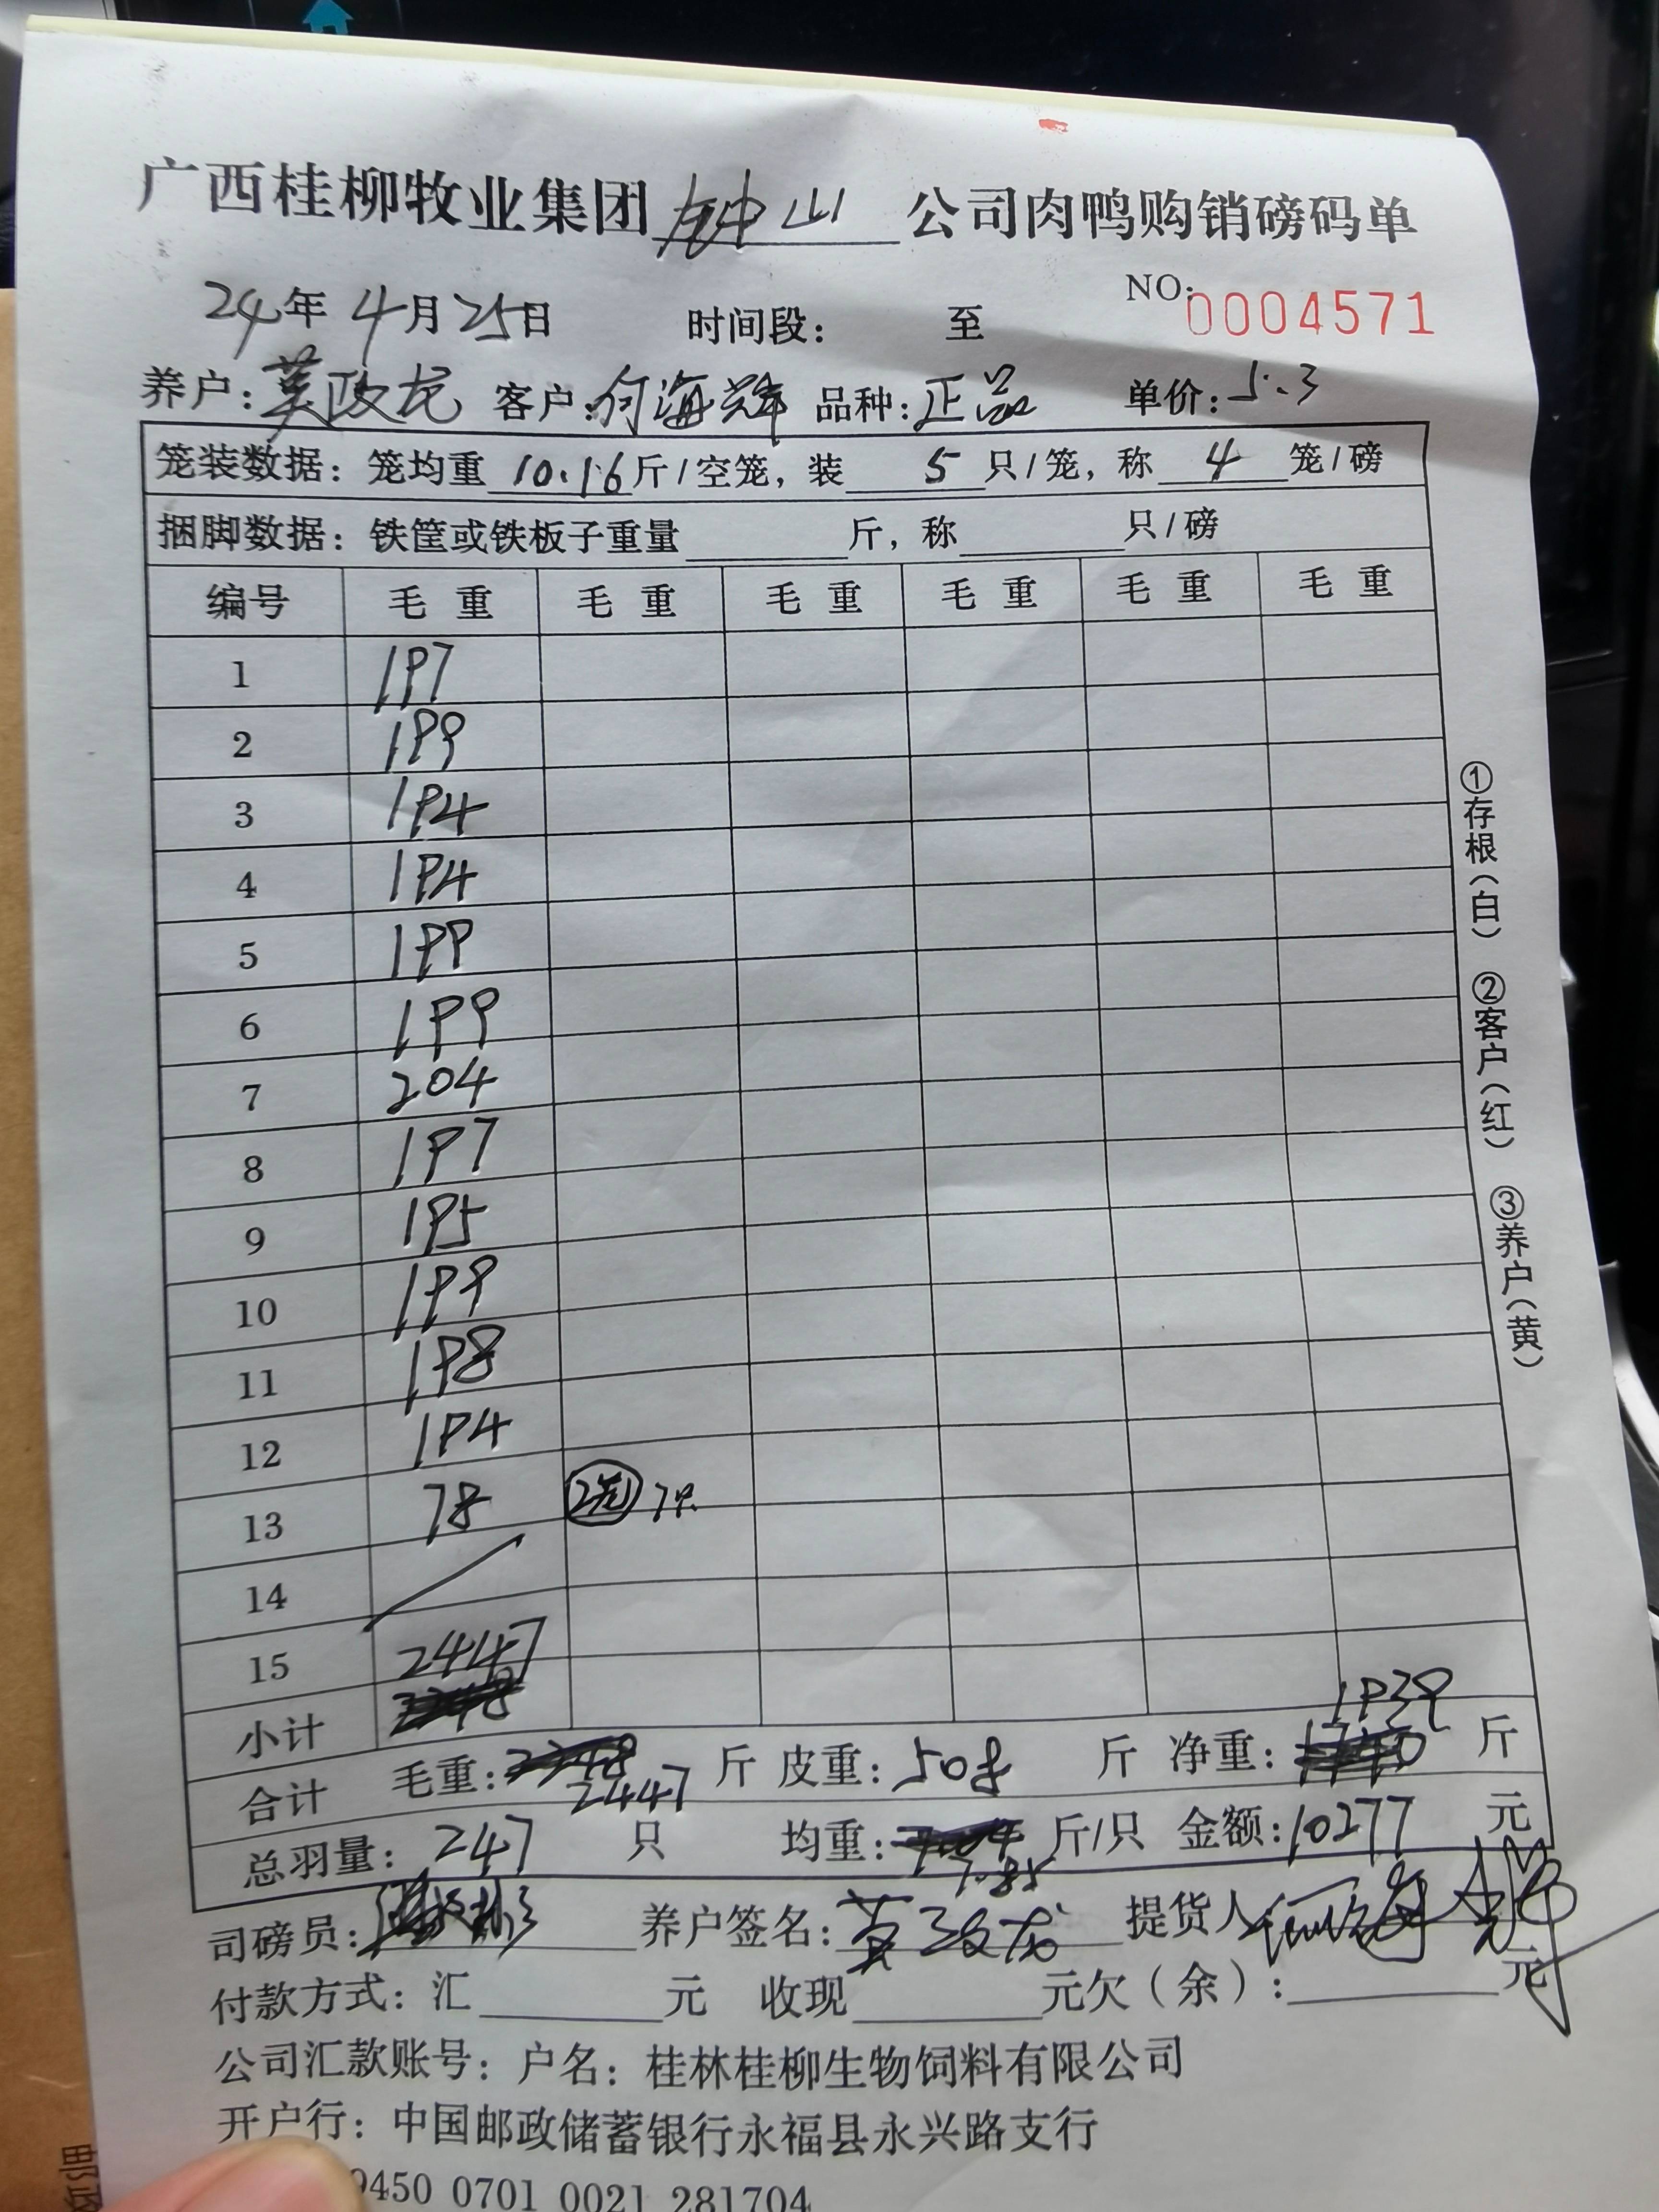 广西桂柳牧业集团 钟山 公司肉鸭购销磅码单
NO:0004571
24年 4月 25日 时间段: 至
养户:莫政龙 客户:何海辉 品种:正品 单价:5.3
笼装数据:笼均重 10.16 斤/空笼,装 5 只/笼,称 4 笼/磅
捆脚数据:铁筐或铁板子重量 斤,称 只/磅
编号 毛重 毛重 毛重 毛重 毛重 毛重
1 197
2 199
3 194
4 194
5 199
6 199
7 204
8 197
9 195
10 199
11 198
12 194
13 78 2笼 7只
14
15 2447
小计
1939
合计 毛重: 2447 斤 皮重:508 斤 净重: 斤
总羽量:247 只 均重: 7.85 斤/只 金额:10277 元
司磅员: 养户签名:莫政龙 提货人:何海辉
付款方式:汇 元 收现 元欠(余): 元
公司汇款账号:户名:桂林桂柳生物饲料有限公司
开户行:中国邮政储蓄银行永福县永兴路支行
9450 0701 0021 281704
①存根(白) ②客户(红) ③养户(黄)